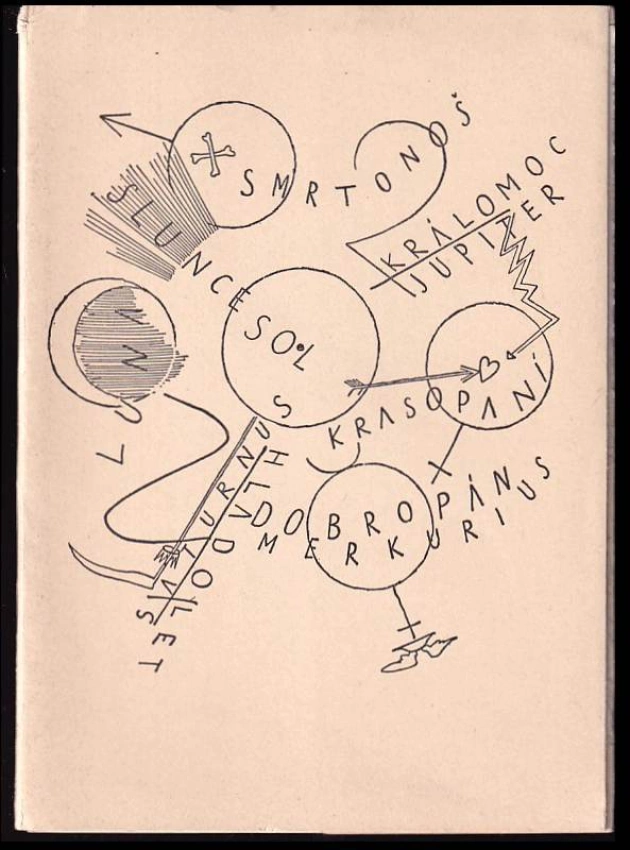 SMRTONOŠ
KRÁLOMOC
JUPITER
SLUNCE
SOL
LUNA
KRASOPANÍ
DOBROPÁN
MERKURIUS
HLADOLET
SATURNUS